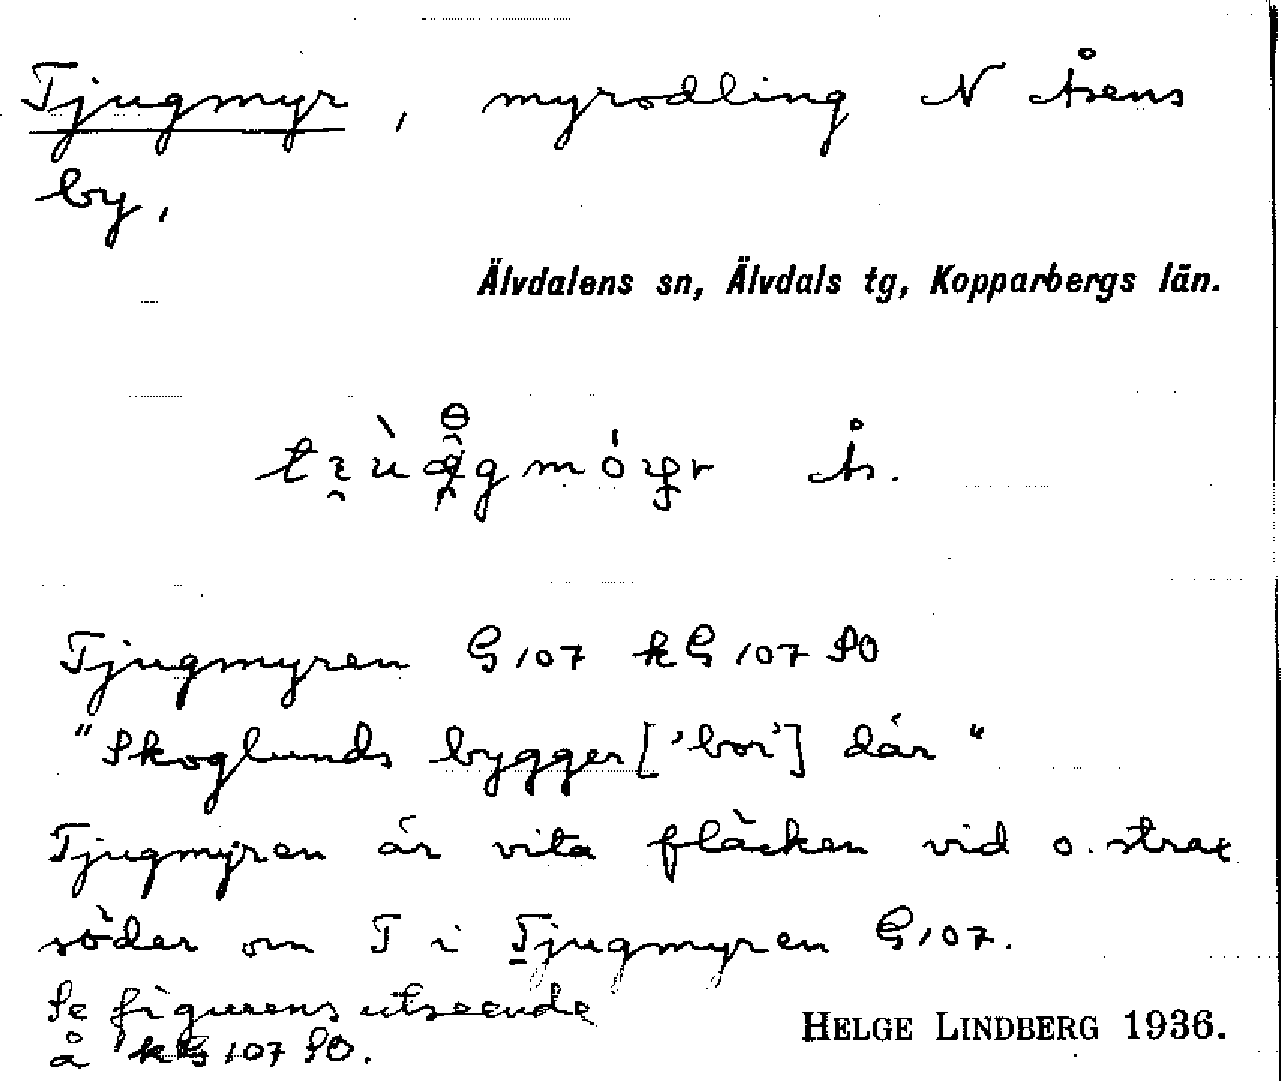 Tjugmyr, myrodling N Åsens
by,
Älvdalens sn, Älvdals tg, Kopparbergs län.
Ås.
Tjugmyren G107 kG107 SO
"Skoglunds bygger ['bor'] där"
Tjugmyren är vita fläcken vid o. strax
söder om T i Tjugmyren G107.
Se figurens utseende
å kG107 SO.
HELGE LINDBERG 1936.